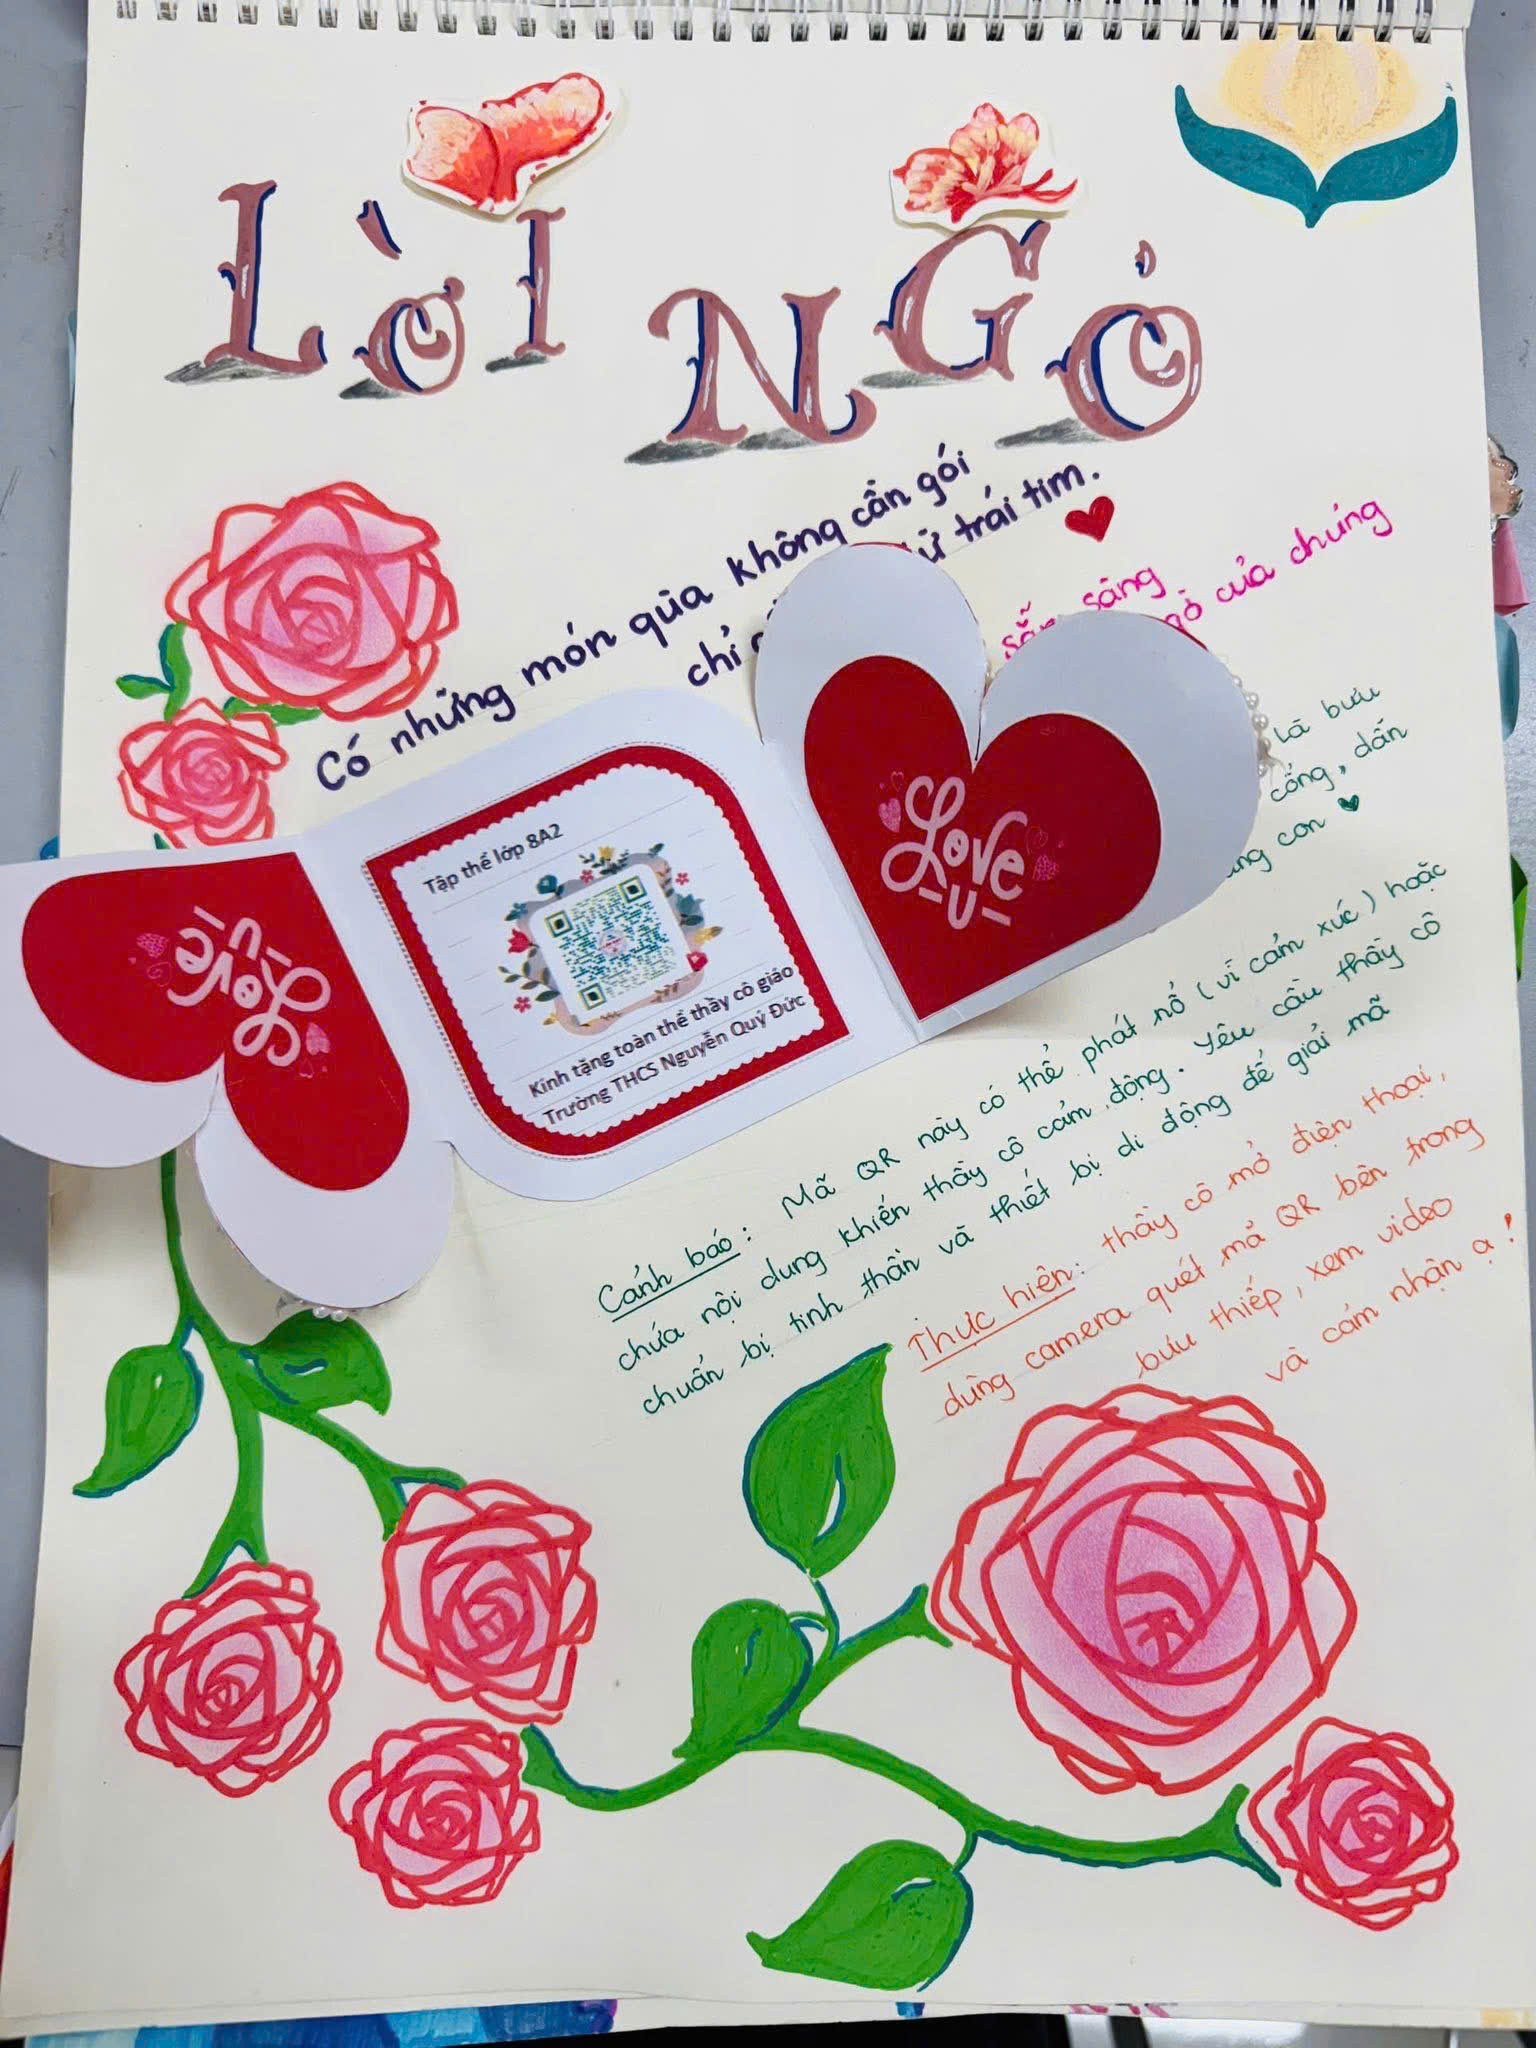 LỜI NGỎ
Có những món qùa không cần gói
chỉ trái tim.
sẵn sàng
của chúng
là bưu
cổng, dấn
con
Cảnh báo: Mã QR này có thể phát nổ (vì cảm xúc) hoặc
chứa nội dung khiến thầy cô cảm động. Yêu cầu thầy cô
chuẩn bị tinh thần và thiết bị di động để giải mã
Thực hiện: thầy cô mở điện thoại,
dùng camera quét mã QR bên trong
bưu thiếp, xem video
và cảm nhận ạ!
Love
U
Tập thể lớp 8A2
Kính tặng toàn thể thầy cô giáo
Trường THCS Nguyễn Quý Đức
Love
U